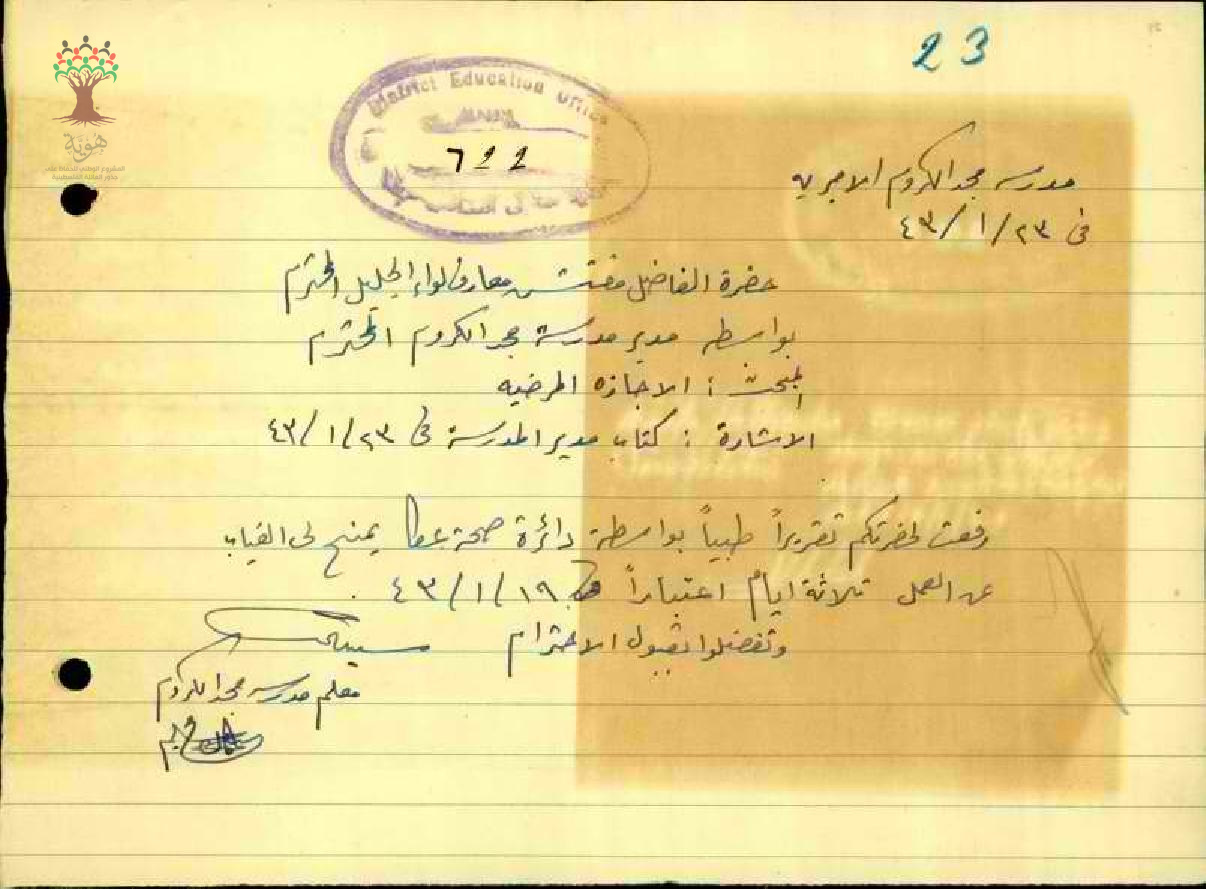 23
District Education Office
722
هُويّة
المشروع الوطني للحفاظ على
جذور العائلة الفلسطينية
مدرسة مجد الكروم الاميرية
في ٢٣/١/٤٣
حضرة الفاضل مفتش معارف لواء الجليل المحترم
بواسطه مدير مدرسة مجد الكروم المحترم
المبحث : الاجازه المرضيه
الاشارة : كتاب مدير المدرسة في ٢٣/١/٤٣
رفعت لحضرتكم تقريراً طبياً بواسطة دائرة صحة عكا يمنح لي الغياب
عن العمل ثلاثة ايام اعتباراً من ١٩/١/٤٣ .
وتفضلوا بقبول الاحترام سيدي
معلم مدرسة مجد الكروم